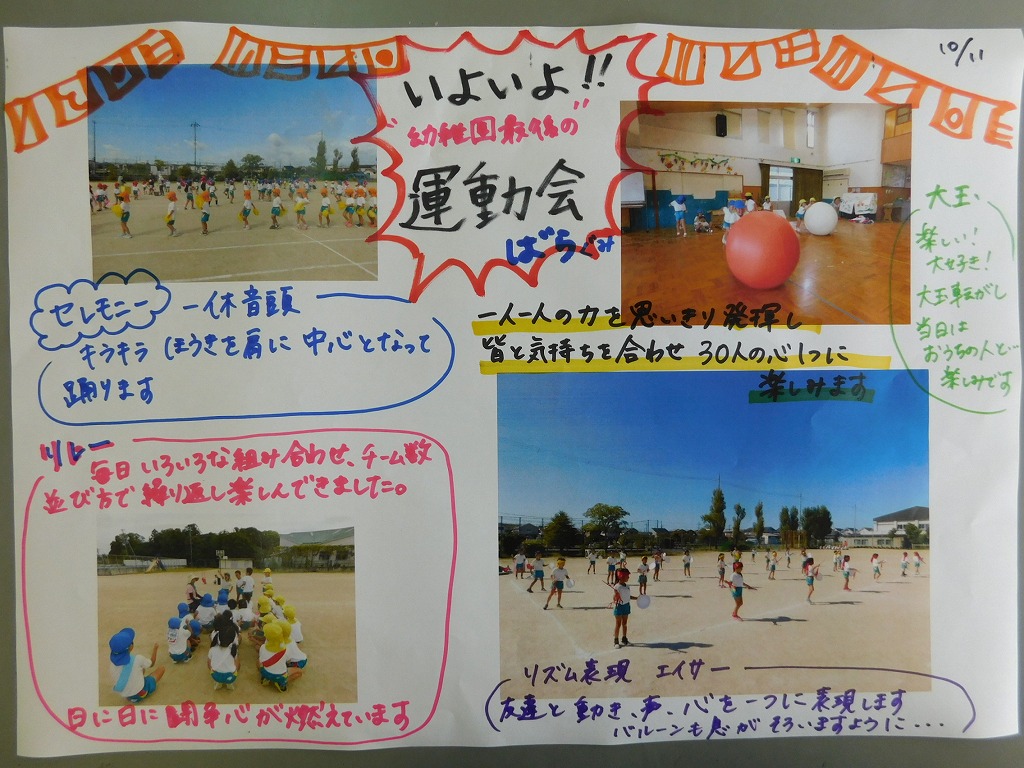 10/11
いよいよ!!
"幼稚園最後の"
運動会
ばらぐみ
セレモニー 一休音頭
キラキラ ほうきを肩に 中心となって
踊ります
大玉
楽しい!
大好き!
大玉転がし
当日は
おうちの人と…
楽しみです
一人一人の力を思いきり発揮し
皆と気持ちを合わせ 30人の心1つに
楽しみます
リレー
毎日いろいろな組み合わせ、チーム数
並び方で繰り返し楽しんできました。
日に日に闘争心が燃えています
リズム表現 エイサー
友達と動き、声、心を一つに表現します
バルーンも息がそろいますように...